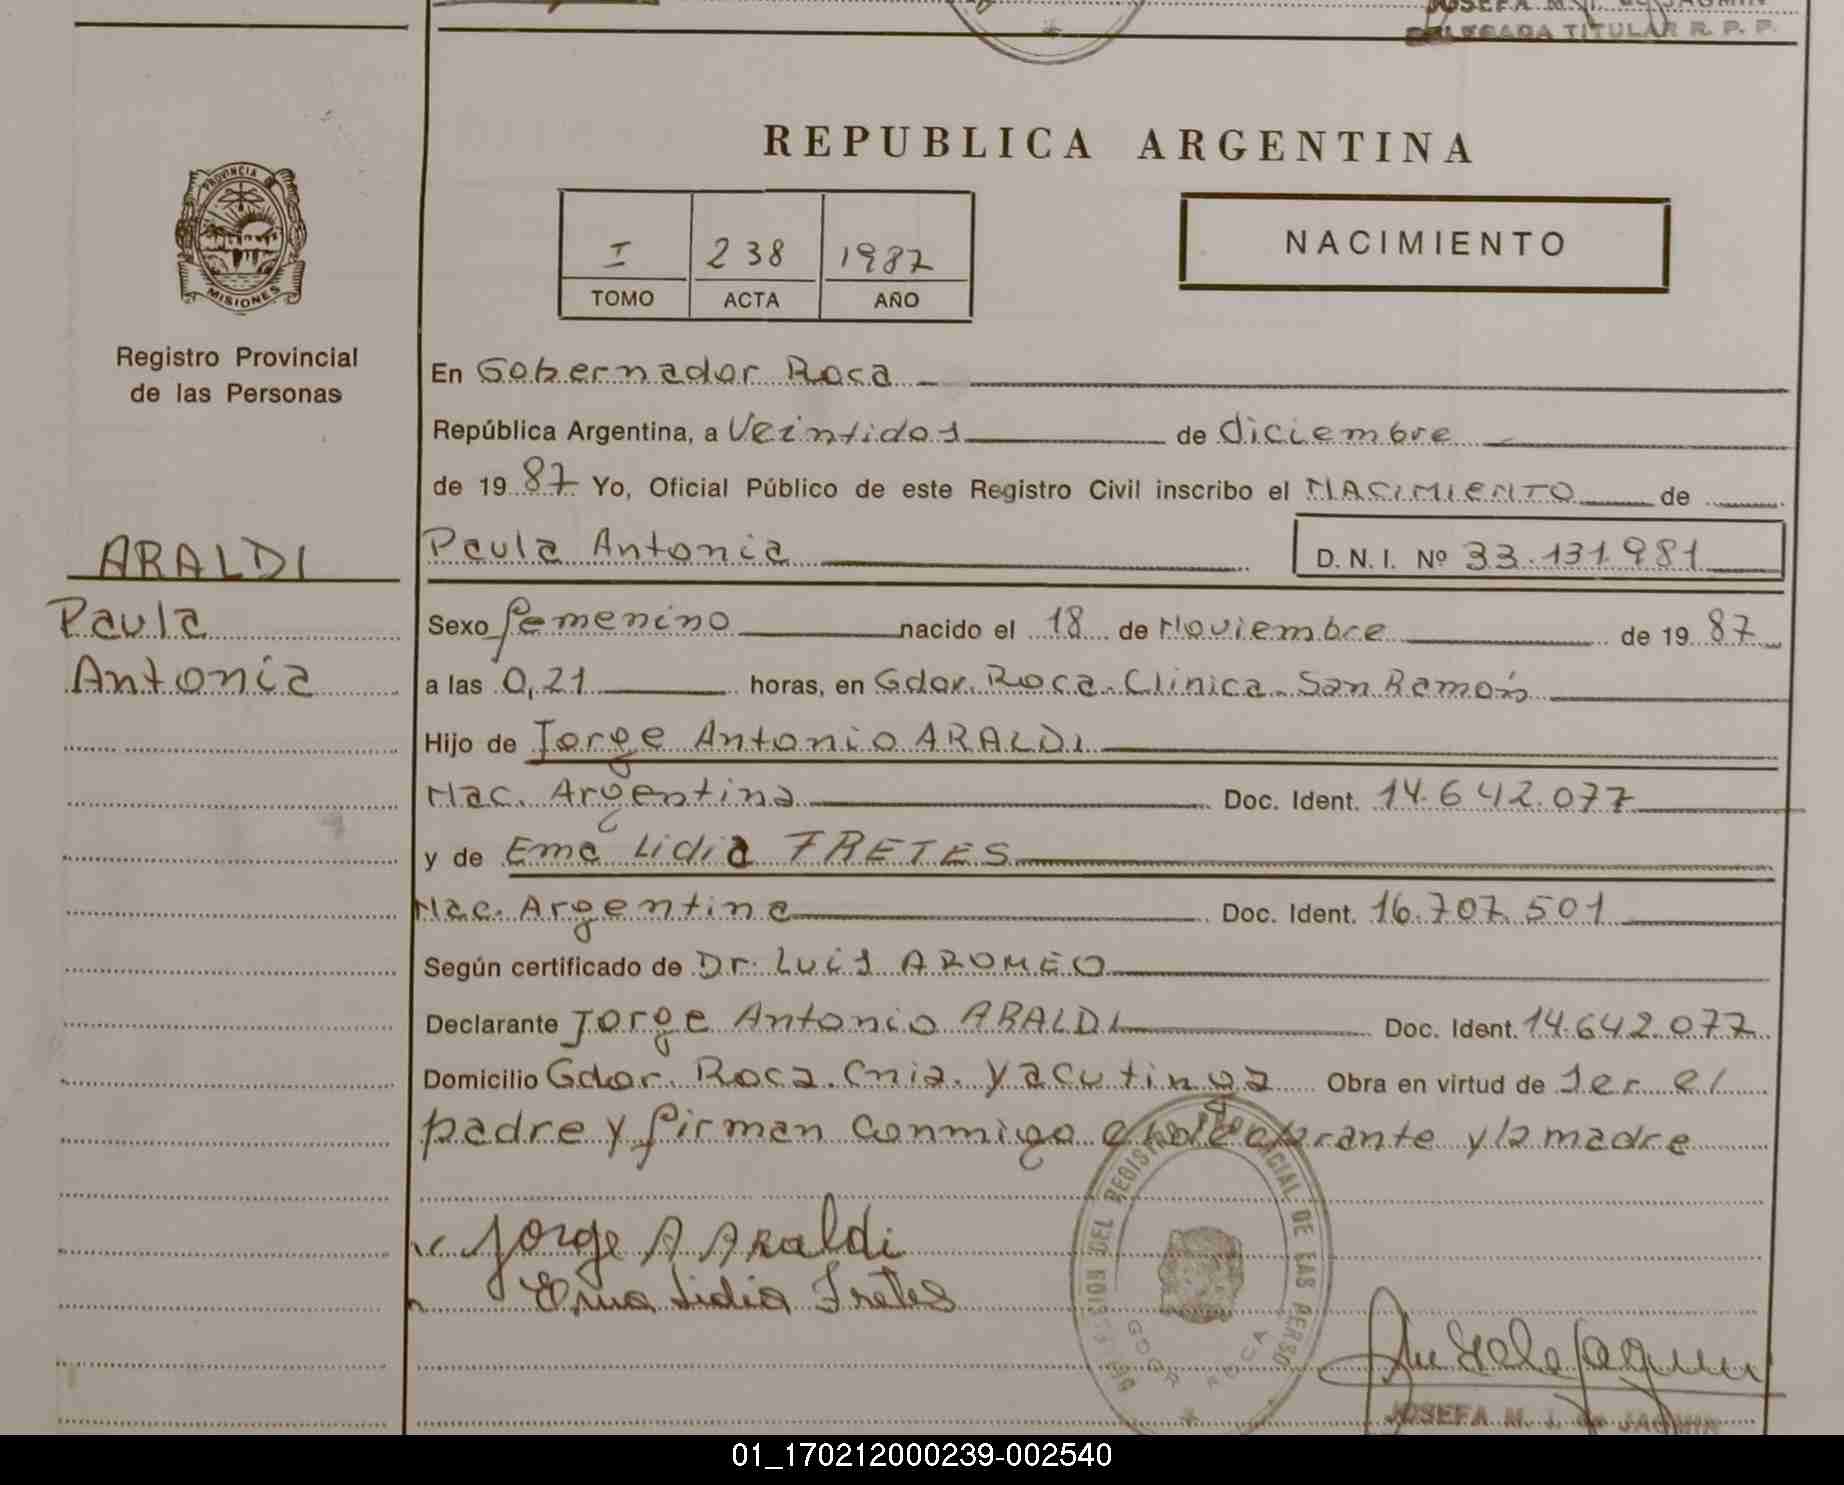 JOSEFA M. I. de JAGMIN
DELEGADA TITULAR R. P. P.
REPUBLICA ARGENTINA
PROVINCIA DE
MISIONES
Registro Provincial
de las Personas
I 238 1987
TOMO ACTA AÑO
NACIMIENTO
En Gobernador Roca
República Argentina, a Veintidos de diciembre
de 1987 Yo, Oficial Público de este Registro Civil inscribo el NACIMIENTO de
ARALDI
Paula Antonia D. N. I. Nº 33.131.981
Paula
Sexo femenino nacido el 18 de Noviembre de 1987
Antonia
a las 0,21 horas, en Gdor. Roca - Clinica - San Ramón
Hijo de Jorge Antonio ARALDI
Nac. Argentina Doc. Ident. 14.642.077
y de Ema Lidia FRETES
Nac. Argentina Doc. Ident. 16.707.501
Según certificado de Dr. Luis AROMEO
Declarante Jorge Antonio ARALDI Doc. Ident. 14.642.077
Domicilio Gdor. Roca. Cnia. Yacutinga Obra en virtud de Ser el
padre y firman conmigo el declarante y la madre
Jorge A Araldi
Ema Lidia Fretes
DEL REGISTRO PROVINCIAL DE LAS PERSO
GDOR ROCA
JOSEFA M. I. de JAGMIN
01_170212000239-002540